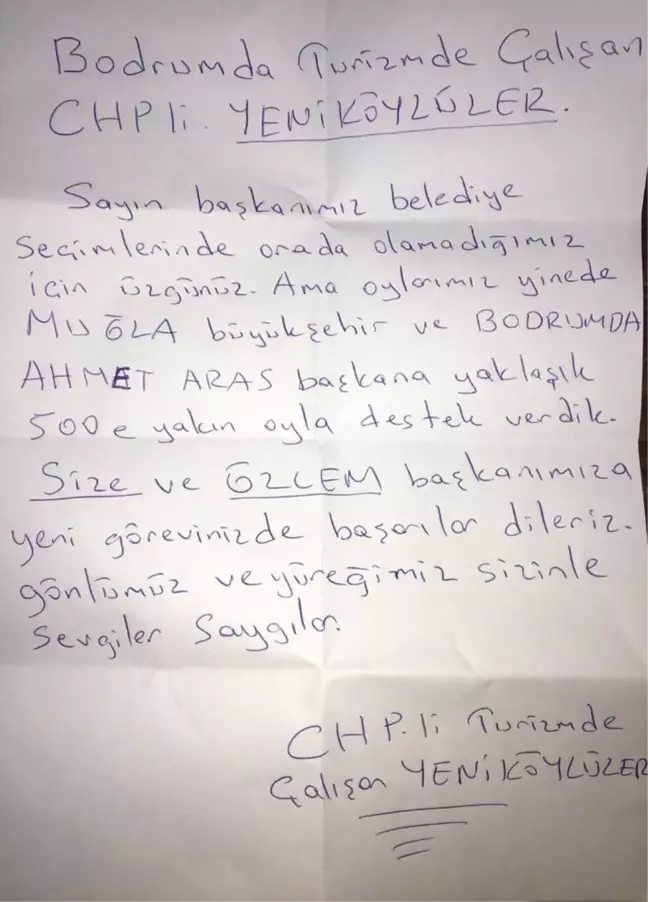 Bodrumda Turizmde Çalışan
CHPli. YENİKÖYLÜLER.
Sayın başkanımız belediye
seçimlerinde orada olamadığımız
için üzgünüz. Ama oylarımız yinede
MUĞLA büyükşehir ve BODRUMDA
AHMET ARAS başkana yaklaşık
500e yakın oyla destek verdik.
Size ve ÖZLEM başkanımıza
yeni görevinizde başarılar dileriz.
gönlümüz ve yüreğimiz sizinle
Sevgiler Saygılar.
CHP.li Turizmde
Çalışan YENİKÖYLÜLER